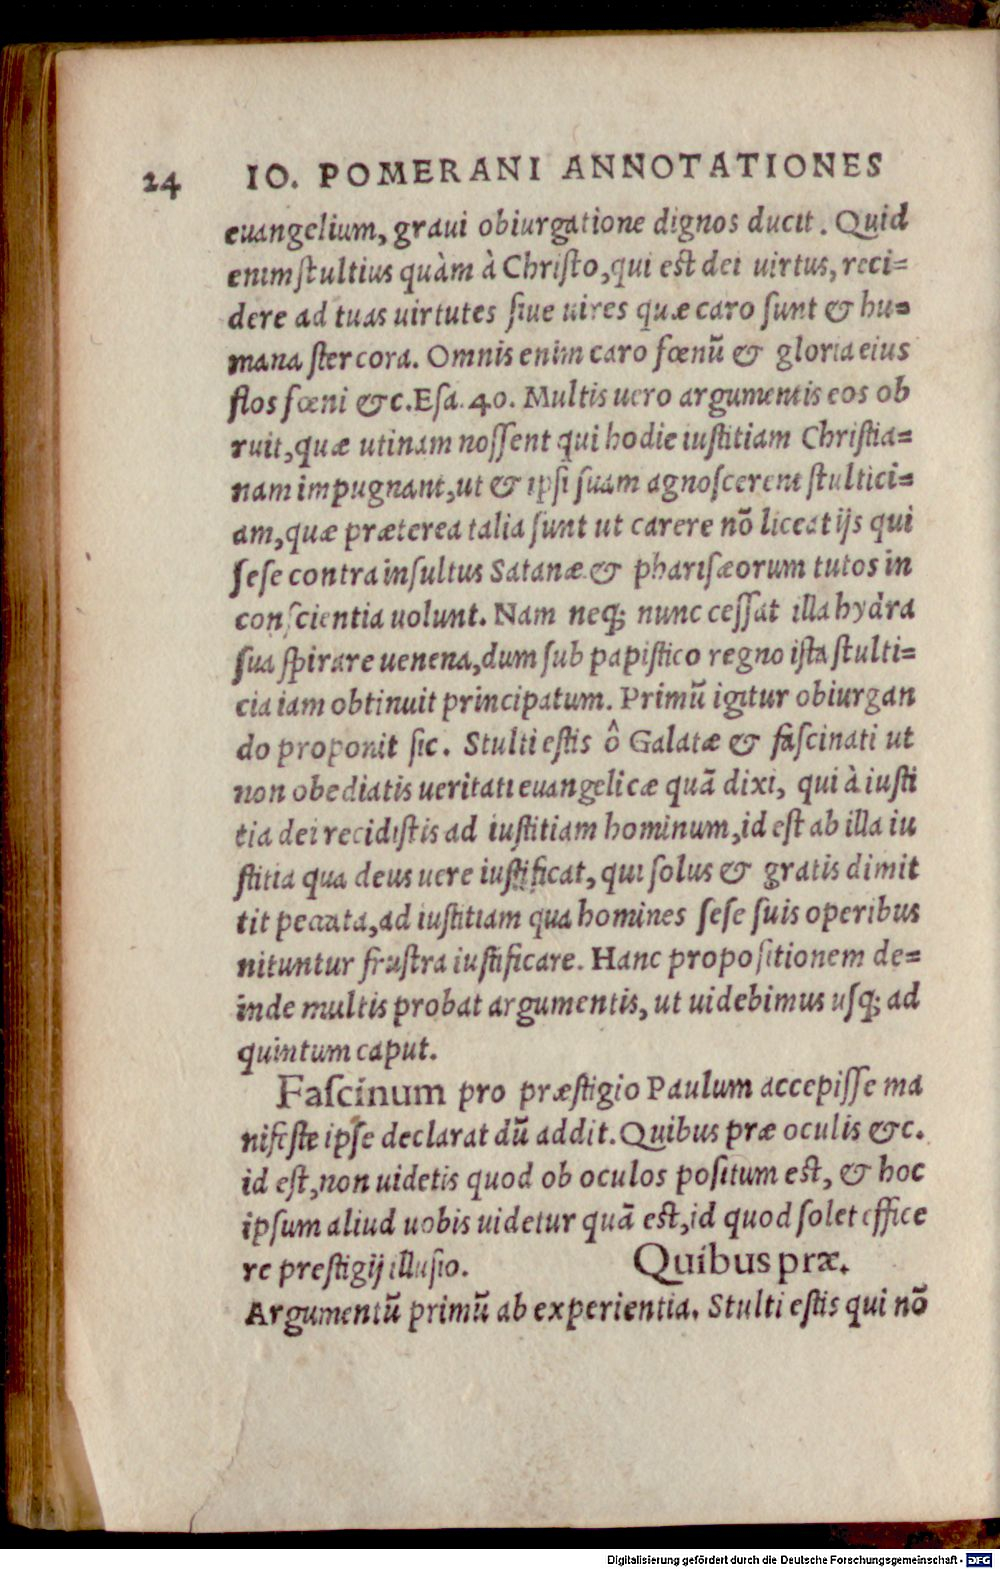 24 IO. POMERANI ANNOTATIONES
euangelium, graui obiurgatione dignos ducit. Quid
enim ſtultius quàm à Chriſto, qui eſt dei uirtus, reci=
dere ad tuas uirtutes ſiue uires quæ caro ſunt & hu=
mana ſtercora. Omnis enim caro fœnū & gloria eius
flos fœni &c. Eſa. 40. Multis uero argumentis eos ob
ruit, quæ utinam noſſent qui hodie iuſtitiam Chriſtia=
nam impugnant, ut & ipſi ſuam agnoſcerent ſtultici=
am, quæ præterea talia ſunt ut carere nō liceat ijs qui
ſeſe contra inſultus Satanæ & phariſæorum tutos in
conſcientia uolunt. Nam neq; nunc ceſſat illa hydra
ſua ſpirare uenena, dum ſub papiſtico regno iſta ſtulti=
cia iam obtinuit principatum. Primū igitur obiurgan
do proponit ſic. Stulti eſtis ô Galatæ & faſcinati ut
non obediatis ueritati euangelicæ quā dixi, qui à iuſti
tia dei recidiſtis ad iuſtitiam hominum, id eſt ab illa iu
ſtitia qua deus uere iuſtificat, qui ſolus & gratis dimit
tit peccata, ad iuſtitiam qua homines ſeſe ſuis operibus
nituntur fruſtra iuſtificare. Hanc propoſitionem de=
inde multis probat argumentis, ut uidebimus uſq; ad
quintum caput.
Faſcinum pro præſtigio Paulum accepiſſe ma
nifeſte ipſe declarat dū addit. Quibus præ oculis &c.
id eſt, non uidetis quod ob oculos poſitum eſt, & hoc
ipſum aliud uobis uidetur quā eſt, id quod ſolet effice
re preſtigij illuſio. Quibus præ.
Argumentū primū ab experientia. Stulti eſtis qui nō
Digitalisierung gefördert durch die Deutsche Forschungsgemeinschaft - DFG